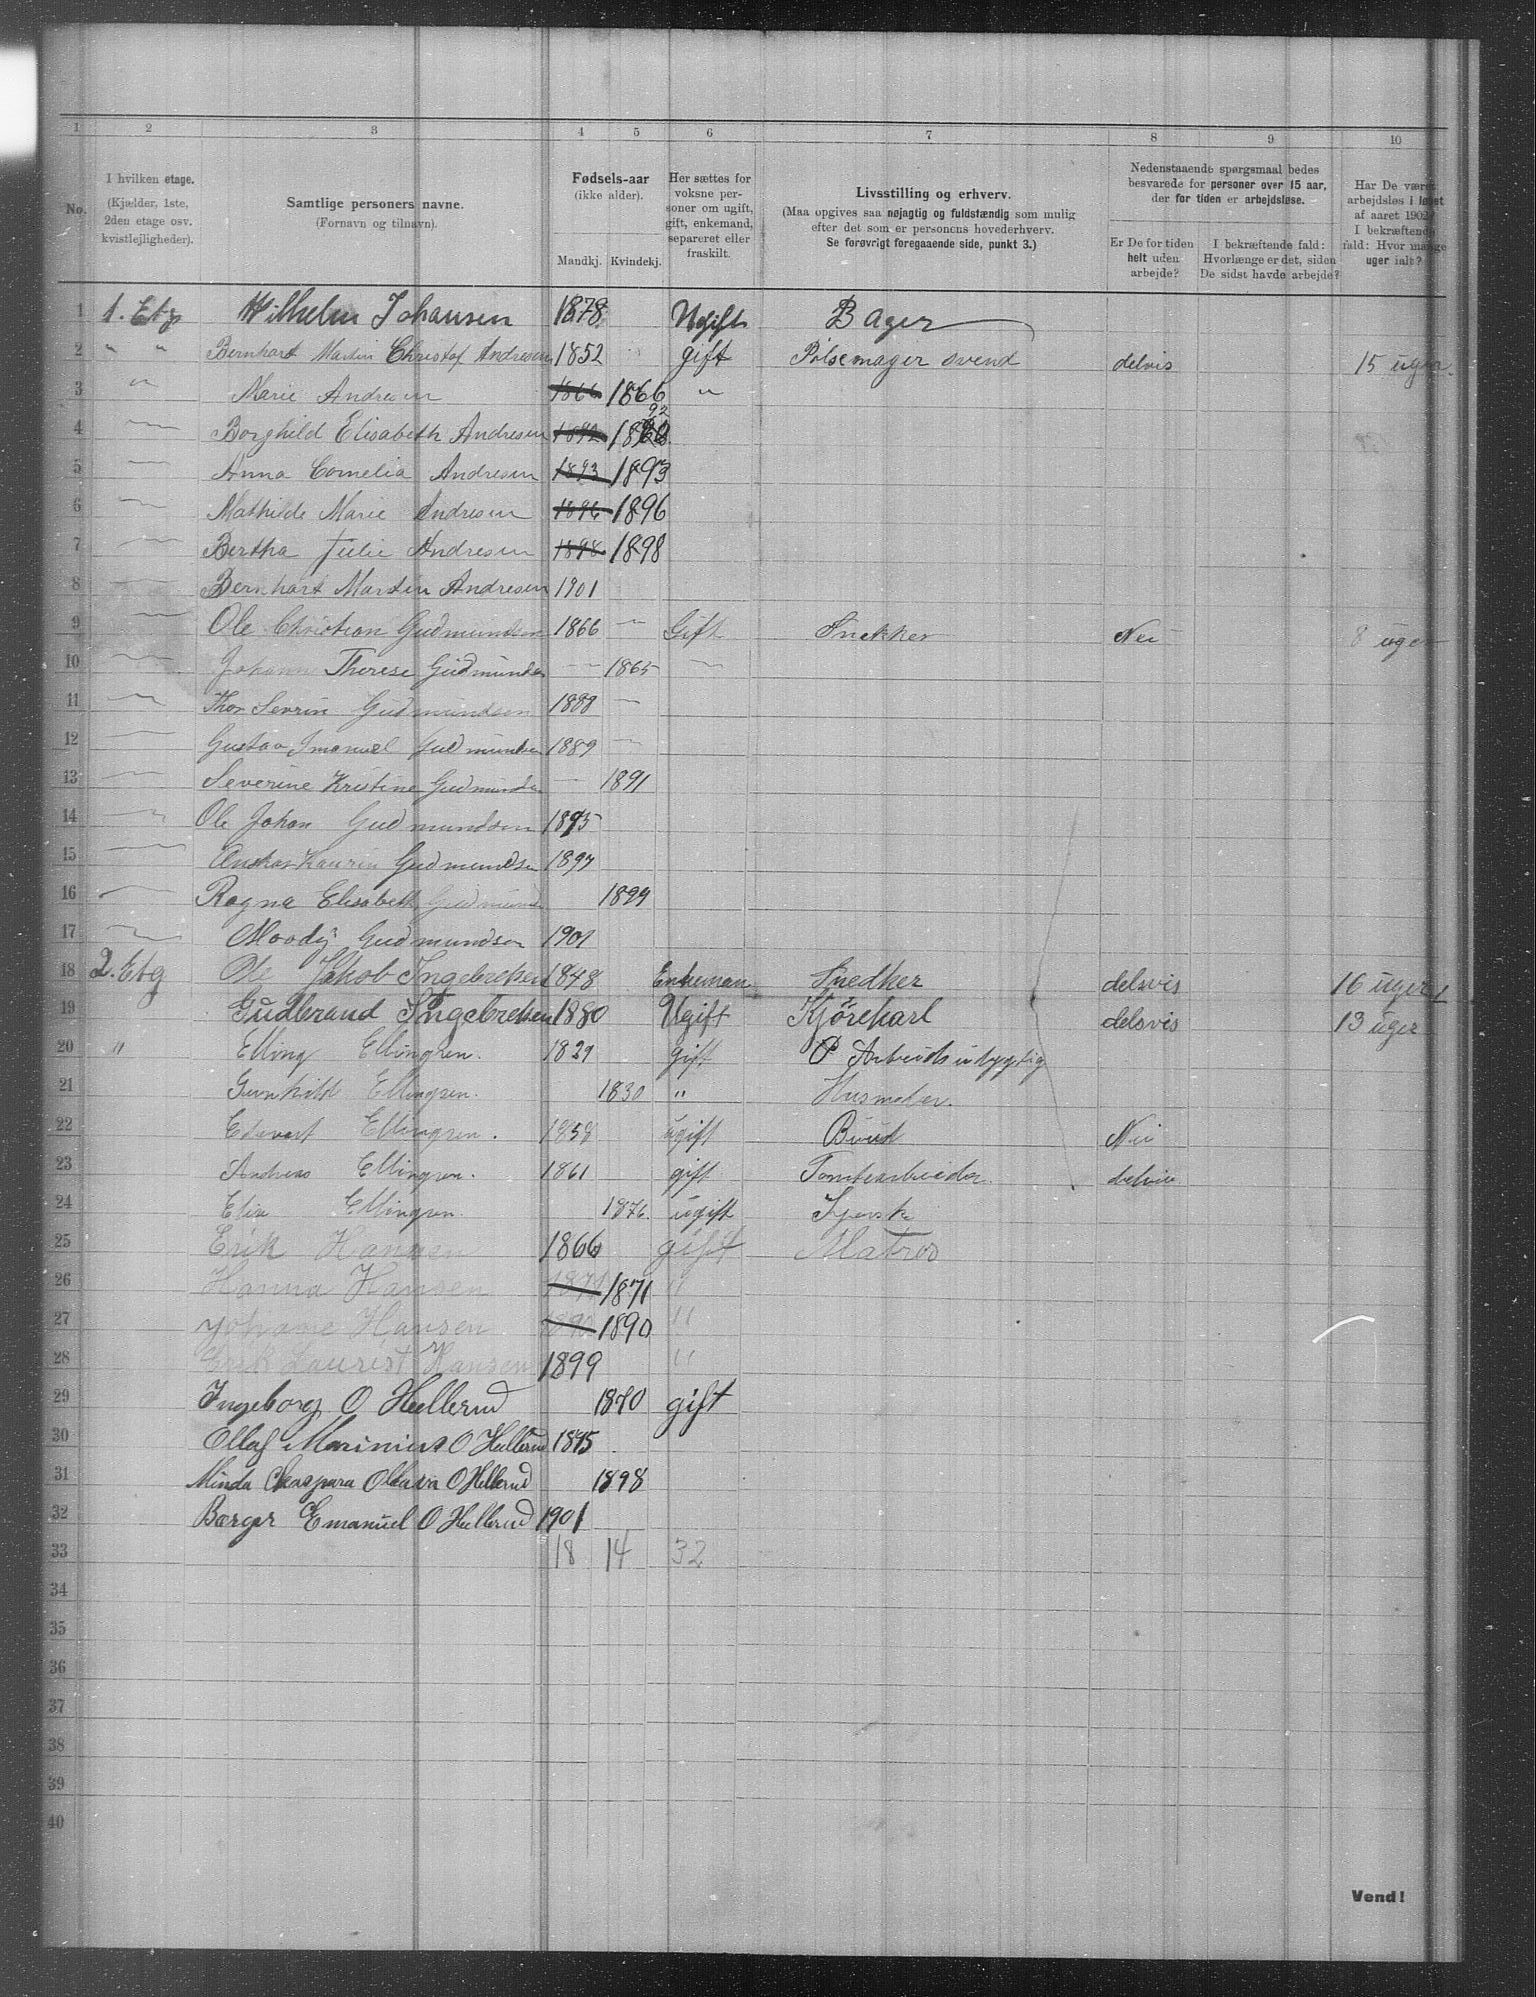 1 2 3 4 5 6 7 8 9 10
No.
I hvilken etage. (Kjælder, 1ste, 2den etage osv. kvistlejligheder).
Samtlige personers navne. (Fornavn og tilnavn).
Fødsels-aar (ikke alder). Mandkj. Kvindekj.
Her sættes for voksne personer om ugift, gift, enkemand, separeret eller fraskilt.
Livsstilling og erhverv. (Maa opgives saa nøjagtig og fuldstændig som mulig efter det som er personens hovederhverv. Se forøvrigt foregaaende side, punkt 3.)
Nedenstaaende spørgsmaal bedes besvarede for personer over 15 aar, der for tiden er arbejdsløse.
Er De for tiden helt uden arbejde?
I bekræftende fald: Hvorlænge er det, siden De sidst havde arbejde?
Har De været arbejdsløs i løbet af aaret 1902? I bekræftende fald: Hvor mange uger ialt?
1 1. Etg Wilhelm Johansen 1878 Ugift Bager
2 " " Bernhart Martin Christof Andresen 1852 gift Pølsemager svend delvis 15 ugen.
3 " Marie Andresen 1866 1866 "
4 Borghild Elisabeth Andresen 1892 1868 92
5 Anna Cornelia Andresen 1893 1893
6 Mathilde Marie Andresen 1896 1896
7 Bertha Julie Andresen 1898 1898
8 Bernhart Martin Andresen 1901
9 Ole Christian Gudmundsen 1866 Gift Snekker Nei 8 uger
10 Johanne Therese Gudmundsen 1865
11 Thor Sevrin Gudmundsen 1888
12 Gustav Imanuel Gudmundsen 1889
13 Severine Kristine Gudmundsen 1891
14 Ole Johan Gudmundsen 1895
15 Gudmundsen 1897
16 Ragna Elisabeth Gudmunds 1899
17 Moody Gudmundsen 1901
18 2. Etg Ole Jakob Ingebretsen 1848 Enkeman Snedker delsvis 16 uger
19 Gudbrand Ingebretsen 1880 Ugift Kjørekarl delsvis 13 uger
20 " Elling Ellingsen. 1829 gift Arbeidsudygtig
21 Gunhild Ellingsen. 1830 " Husmoder.
22 Edvart Ellingsen. 1858 ugift Bud Nei
23 Andreas Ellingsen. 1861 gift Tomtearbeider. delvis
24 Elise Ellingsen. 1876. ugift
25 Erik Hansen 1866 gift Matros
26 Hanna Hansen 1871 1871 "
27 Johanne Hansen 1890 1890 "
28 Erik Laurist Hansen 1899 "
29 Ingeborg O Hellerud 1870 gift
30 Ollaf Marinius O Hellerud 1895
31 Minda Chaspara Oktavia O Hellerud 1898
32 Børger Emanuel O Hellerud 1901
33 18 14 32
34
35
36
37
38
39
40
Vend!